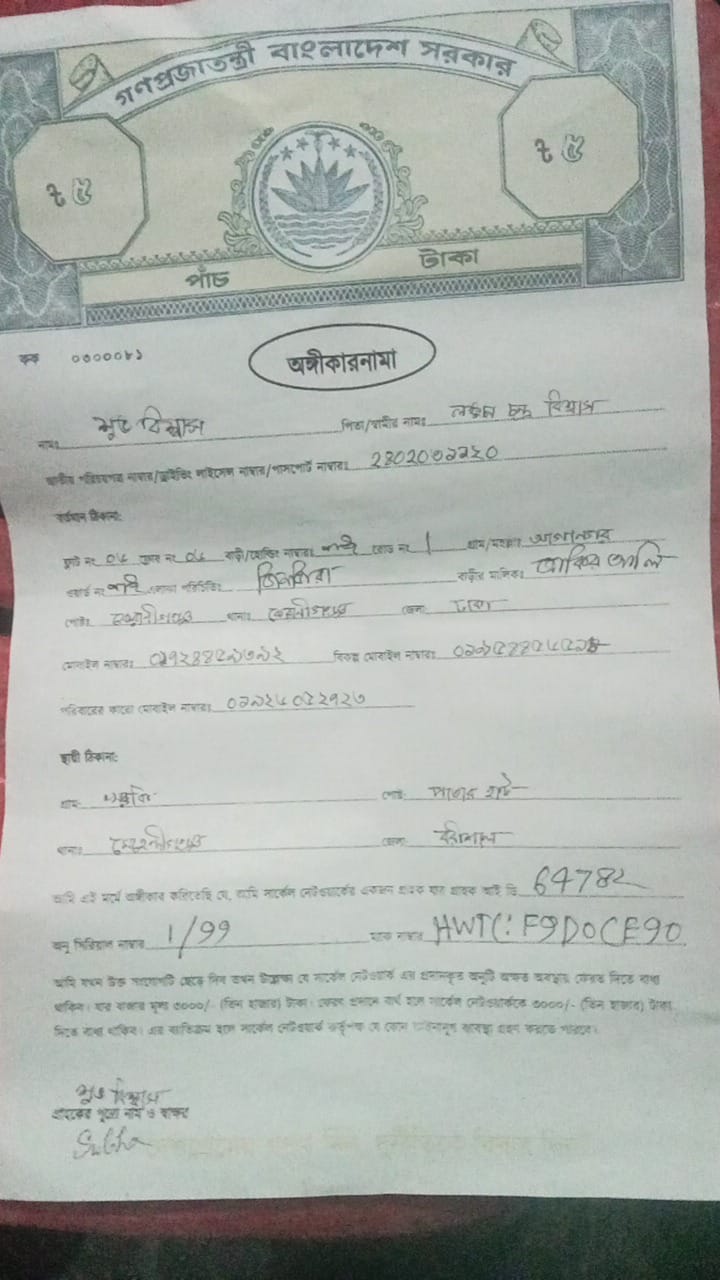 গণপ্রজাতন্ত্রী বাংলাদেশ সরকার
৳ ৫
৳ ৫
পাঁচ টাকা
কক ৩৩০০০৮১
অঙ্গীকারনামা
নামঃ বিশ্বাস পিতা/স্বামীর নামঃ চন্দ্র বিশ্বাস
জাতীয় পরিচয়পত্র নাম্বার/ড্রাইভিং লাইসেন্স নাম্বার/পাসপোর্ট নাম্বারঃ
বর্তমান ঠিকানা:
ফ্লাট নং ০৬ ফ্লোর নং ০৬ বাড়ী/হোল্ডিং নাম্বারঃ নাই রোড নং 1 গ্রাম/মহল্লাঃ
ওয়ার্ড নং নাই এলাকা পরিচিতিঃ জিনজিরা বাড়ীর মালিকঃ জাকির আলি
পোষ্টঃ কেরানীগঞ্জ থানাঃ কেরানীগঞ্জ জেলাঃ ঢাকা
মোবাইল নাম্বারঃ বিকল্প মোবাইল নাম্বারঃ
পরিবারের কারো মোবাইল নাম্বারঃ
স্থায়ী ঠিকানা:
গ্রামঃ পোষ্টঃ হাট
থানাঃ জেলাঃ বরিশাল
আমি এই মর্মে অঙ্গীকার করিতেছি যে, আমি সার্কেল নেটওয়ার্কের একজন গ্রাহক যার গ্রাহক আই ডি 64782
অনু সিরিয়াল নাম্বার 1/99 ম্যাক নাম্বার HWTC: F9D0CE90
আমি যখন উক্ত সংযোগটি ছেড়ে দিব তখন উল্লেক্ষ্য যে সার্কেল নেটওয়ার্ক এর প্রদানকৃত অনুটি অক্ষত অবস্থায় ফেরত দিতে বাধ্য
থাকিব। যার বাজার মূল্য ৩০০০/- (তিন হাজার) টাকা। ফেরত প্রদানে ব্যর্থ হলে সার্কেল নেটওয়ার্ককে ৩০০০/- (তিন হাজার) টাকা
দিতে বাধ্য থাকিব। এর ব্যতিক্রম হলে সার্কেল নেটওয়ার্ক কর্তৃপক্ষ যে কোন আইনানুগ ব্যবস্থা গ্রহণ করতে পারবে।
বিশ্বাস
গ্রাহকের পুরো নাম ও স্বাক্ষর